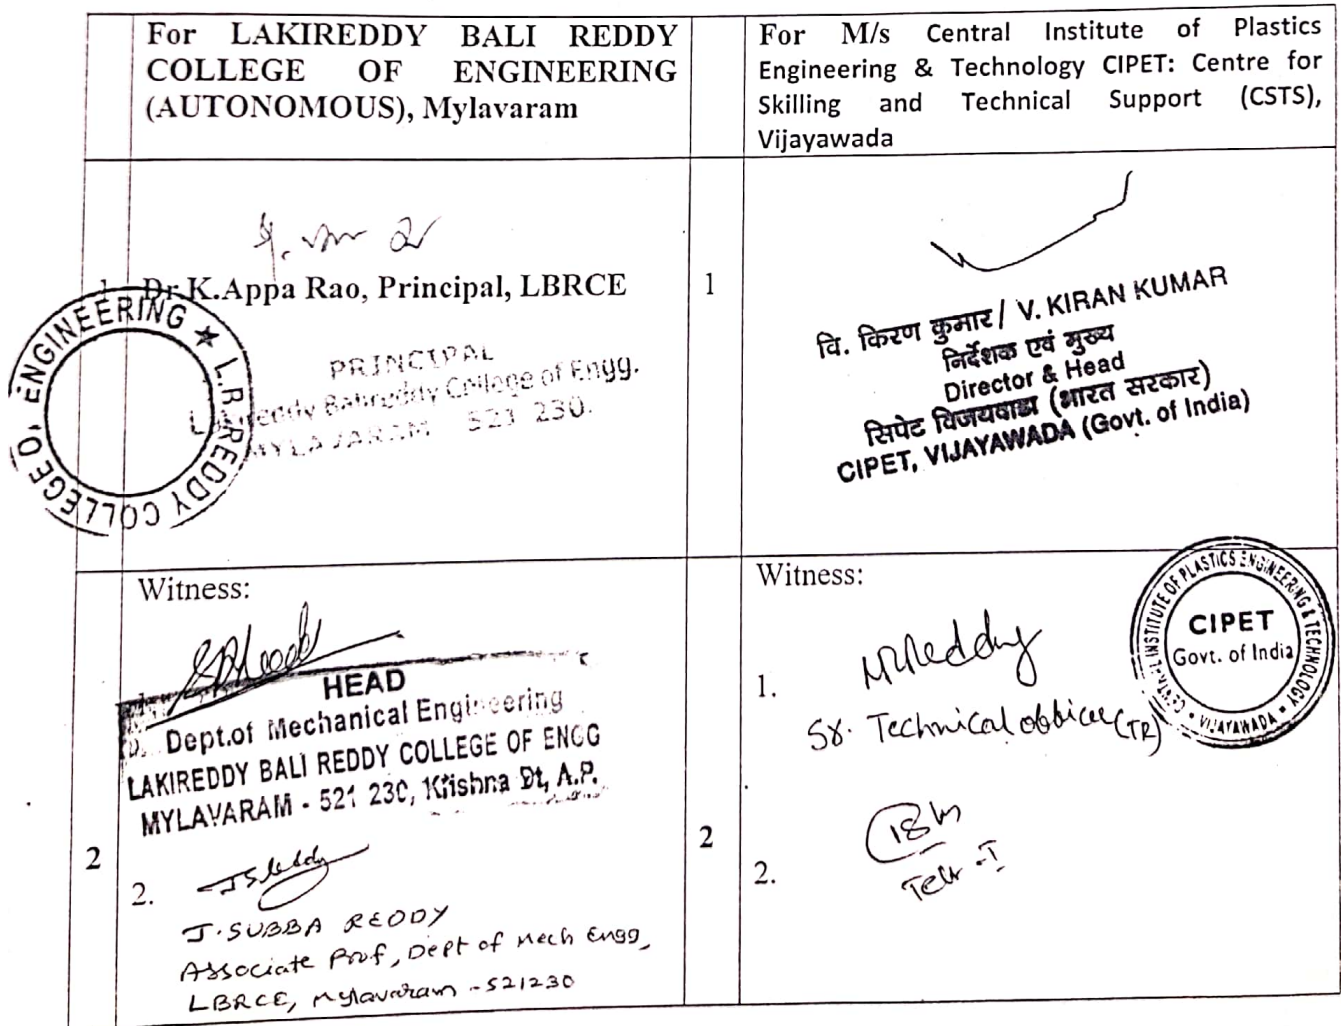 For LAKIREDDY BALI REDDY
COLLEGE OF ENGINEERING
(AUTONOMOUS), Mylavaram
For M/s Central Institute of Plastics
Engineering & Technology CIPET: Centre for
Skilling and Technical Support (CSTS),
Vijayawada
1
Dr.K.Appa Rao, Principal, LBRCE
PRINCIPAL
Lakireddy Balireddy College of Engg.
MYLAVARAM 521 230.
L.R.REDDY COLLEGE O, ENGINEERING ★
1
वि. किरण कुमार / V. KIRAN KUMAR
निर्देशक एवं मुख्य
Director & Head
सिपेट विजयवाडा (भारत सरकार)
CIPET, VIJAYAWADA (Govt. of India)
2
Witness:
HEAD
Dept.of Mechanical Engineering
LAKIREDDY BALI REDDY COLLEGE OF ENGG
MYLAVARAM - 521 230, Krishna Dt, A.P.
2.
J. SUBBA REDDY
Associate Prof, Dept of Mech Engg,
LBRCE, Mylavaram - 521230
2
Witness:
1.
Sr. Technical officer (TR)
2.
Tech - I
INSTITUTE OF PLASTICS ENGINEERING & TECHNOLOGY
• VIJAYAWADA •
CIPET
Govt. of India